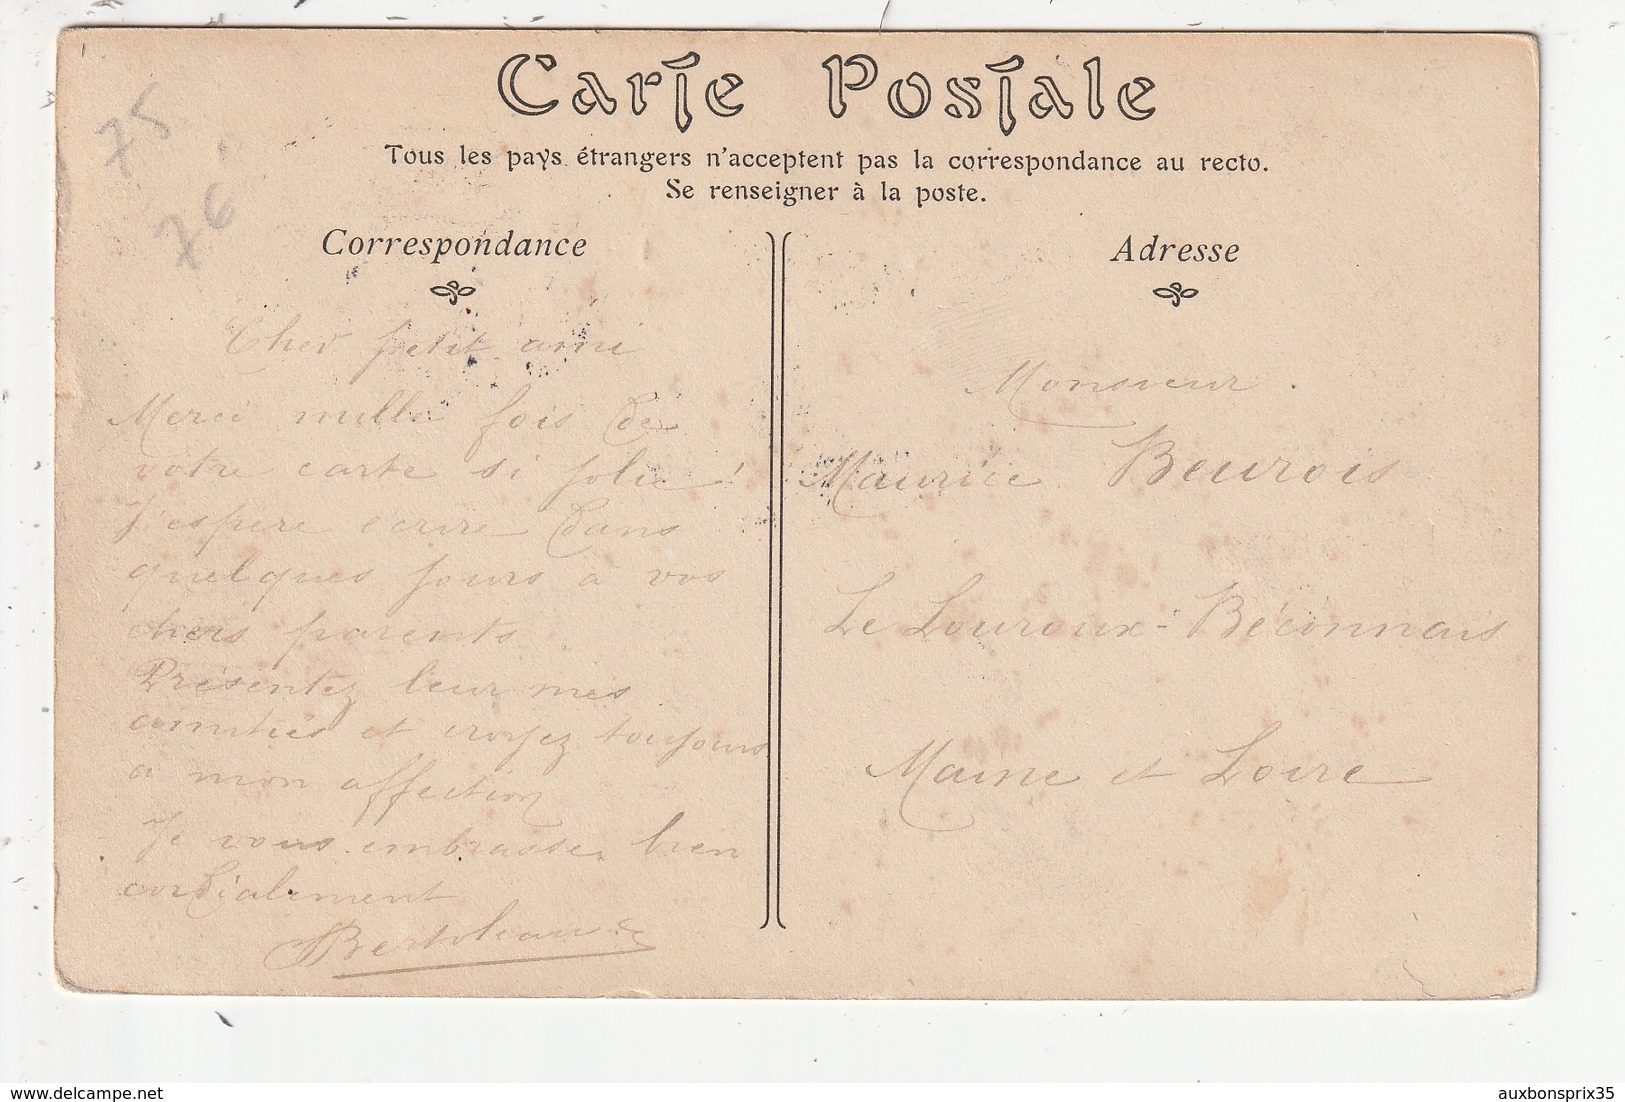 Carte Postale
Tous les pays étrangers n'acceptent pas la correspondance au recto.
Se renseigner à la poste.
75
76
Correspondance
Cher petit ami
Merci mille fois de
votre carte si jolie !
J'espère écrire dans
quelques jours à vos
chers parents
Présentez leur mes
amitiés et croyez toujours
a mon affection
Je vous embrasse bien
cordialement
Adresse
Monsieur
Maurice Beurois
Le Louroux-Béconnais
Maine et Loire
delcampe.net
auxbonsprix35